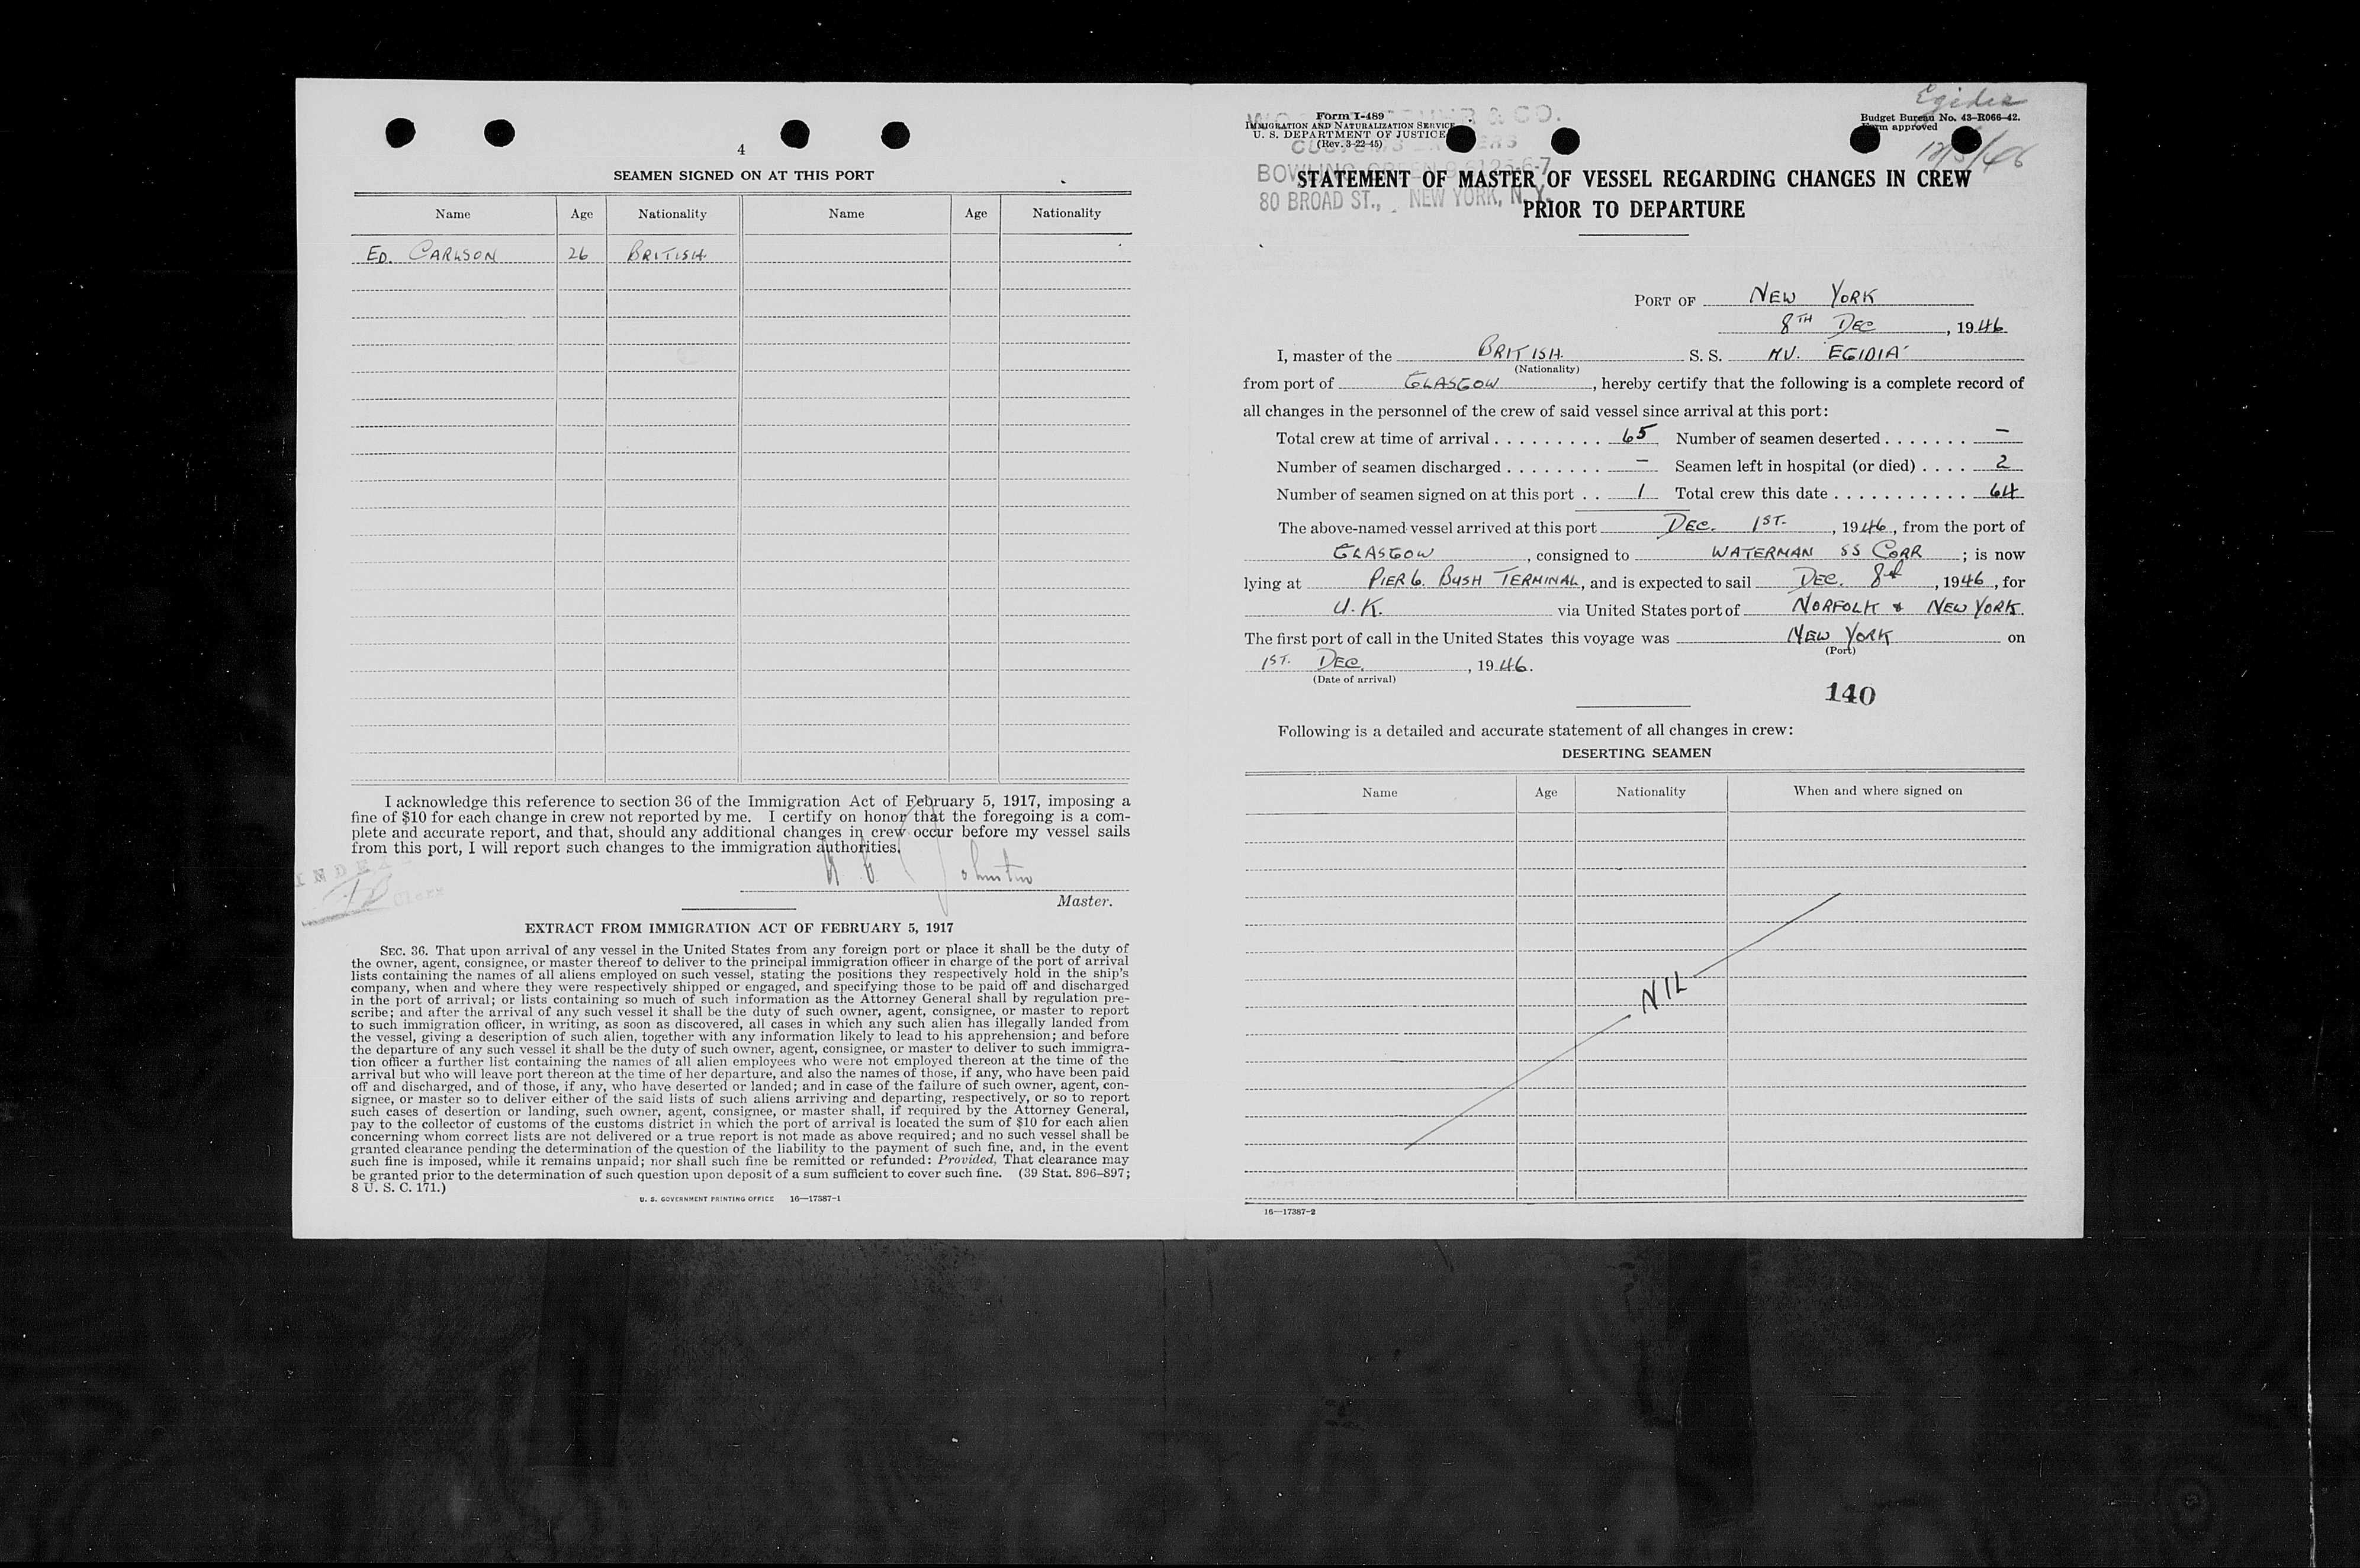 4
SEAMEN SIGNED ON AT THIS PORT
Name Age Nationality Name Age Nationality
ED. CARLSON 26 BRITISH
I acknowledge this reference to section 36 of the Immigration Act of February 5, 1917, imposing a
fine of $10 for each change in crew not reported by me. I certify on honor that the foregoing is a com-
plete and accurate report, and that, should any additional changes in crew occur before my vessel sails
from this port, I will report such changes to the immigration authorities.
Johnston
Master.
Clerk
EXTRACT FROM IMMIGRATION ACT OF FEBRUARY 5, 1917
SEC. 36. That upon arrival of any vessel in the United States from any foreign port or place it shall be the duty of
the owner, agent, consignee, or master thereof to deliver to the principal immigration officer in charge of the port of arrival
lists containing the names of all aliens employed on such vessel, stating the positions they respectively hold in the ship's
company, when and where they were respectively shipped or engaged, and specifying those to be paid off and discharged
in the port of arrival; or lists containing so much of such information as the Attorney General shall by regulation pre-
scribe; and after the arrival of any such vessel it shall be the duty of such owner, agent, consignee, or master to report
to such immigration officer, in writing, as soon as discovered, all cases in which any such alien has illegally landed from
the vessel, giving a description of such alien, together with any information likely to lead to his apprehension; and before
the departure of any such vessel it shall be the duty of such owner, agent, consignee, or master to deliver to such immigra-
tion officer a further list containing the names of all alien employees who were not employed thereon at the time of the
arrival but who will leave port thereon at the time of her departure, and also the names of those, if any, who have been paid
off and discharged, and of those, if any, who have deserted or landed; and in case of the failure of such owner, agent, con-
signee, or master so to deliver either of the said lists of such aliens arriving and departing, respectively, or so to report
such cases of desertion or landing, such owner, agent, consignee, or master shall, if required by the Attorney General,
pay to the collector of customs of the customs district in which the port of arrival is located the sum of $10 for each alien
concerning whom correct lists are not delivered or a true report is not made as above required; and no such vessel shall be
granted clearance pending the determination of the question of the liability to the payment of such fine, and, in the event
such fine is imposed, while it remains unpaid; nor shall such fine be remitted or refunded: Provided, That clearance may
be granted prior to the determination of such question upon deposit of a sum sufficient to cover such fine. (39 Stat. 896–897;
8 U. S. C. 171.)
U. S. GOVERNMENT PRINTING OFFICE 16—17387-1
Egidia
12/5/46
Form I-489
IMMIGRATION AND NATURALIZATION SERVICE
U. S. DEPARTMENT OF JUSTICE
(Rev. 3-22-45)
Budget Bureau No. 43-R066-42.
Form approved
& CO.
BOWLING GREEN
80 BROAD ST., NEW YORK, N. Y.
STATEMENT OF MASTER OF VESSEL REGARDING CHANGES IN CREW
PRIOR TO DEPARTURE
PORT OF NEW YORK
8TH DEC, 1946
I, master of the BRITISH S. S. MV. EGIDIA
(Nationality)
from port of GLASGOW, hereby certify that the following is a complete record of
all changes in the personnel of the crew of said vessel since arrival at this port:
Total crew at time of arrival . . . . . . . . . 65 Number of seamen deserted . . . . . . . —
Number of seamen discharged . . . . . . . . — Seamen left in hospital (or died) . . . . 2
Number of seamen signed on at this port . . 1 Total crew this date . . . . . . . . . . . 64
The above-named vessel arrived at this port DEC. 1ST., 1946, from the port of
GLASGOW, consigned to WATERMAN SS CORP; is now
lying at PIER 6. BUSH TERMINAL, and is expected to sail DEC. 8th, 1946, for
U.K. via United States port of NORFOLK & NEW YORK.
The first port of call in the United States this voyage was NEW YORK on
(Port)
1ST. DEC, 1946.
(Date of arrival)
140
Following is a detailed and accurate statement of all changes in crew:
DESERTING SEAMEN
Name Age Nationality When and where signed on
NIL
16—17387-2